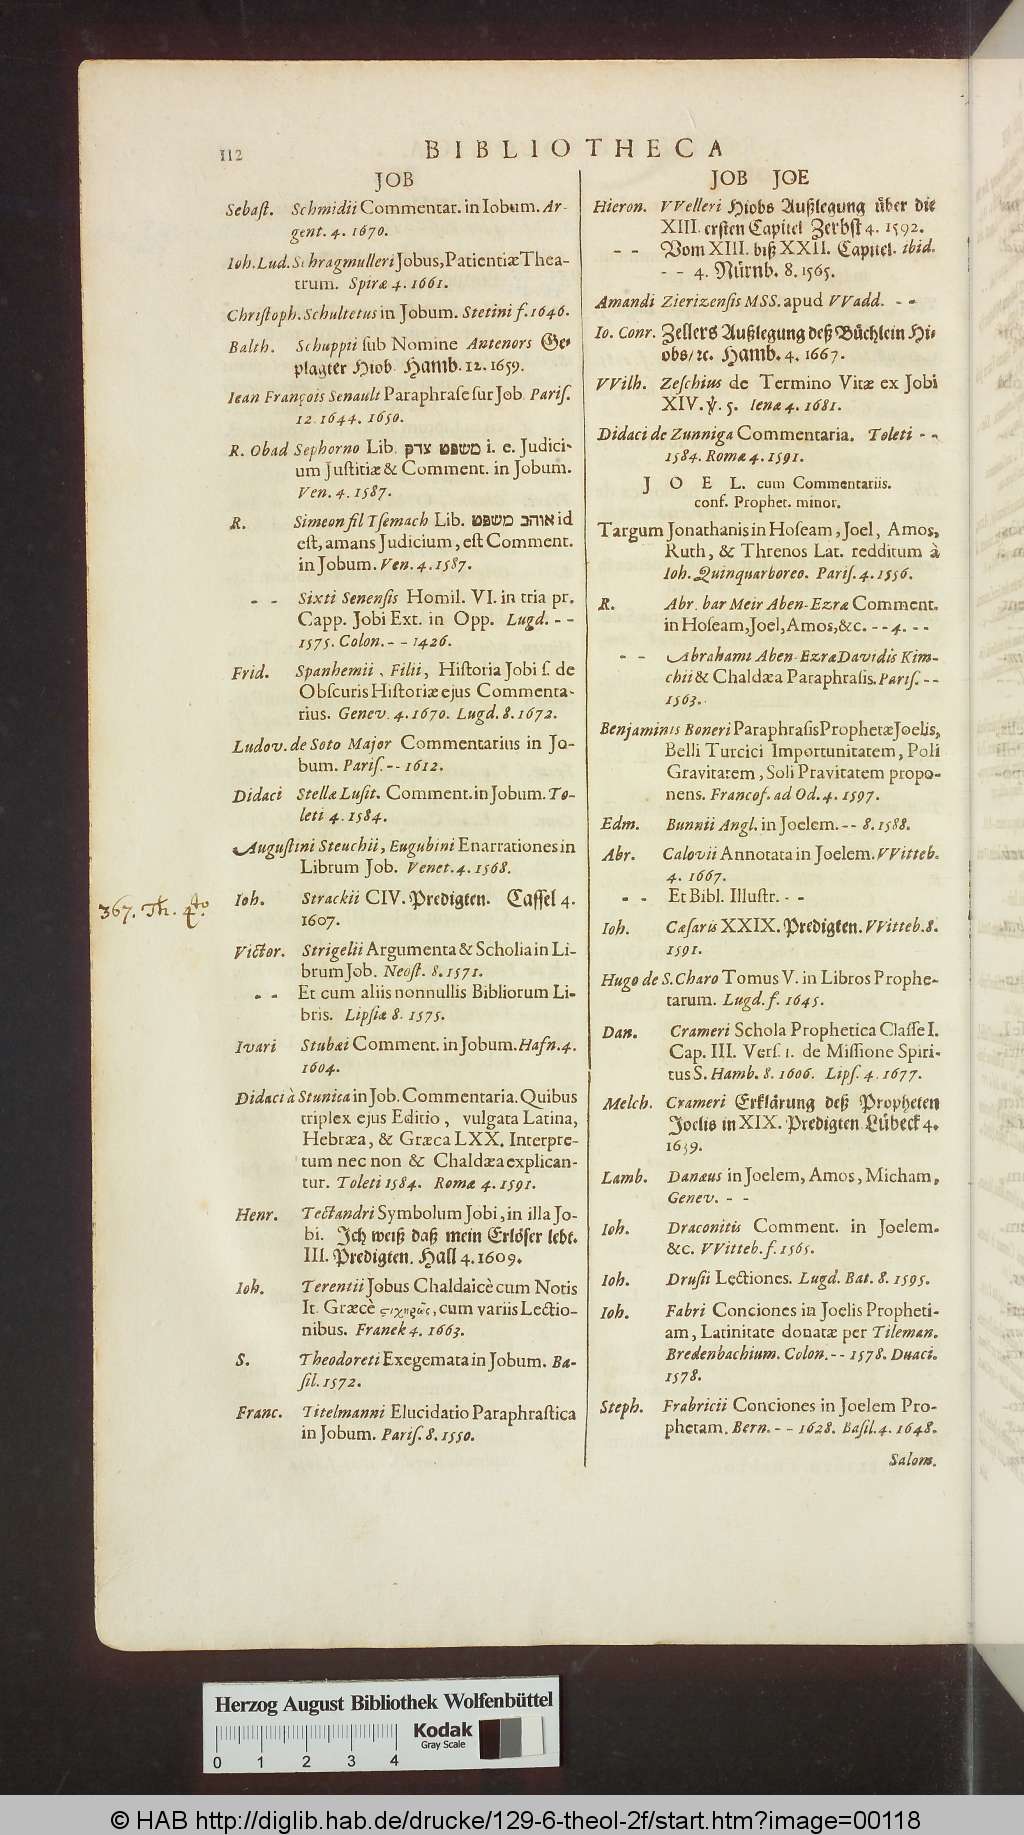 112
BIBLIOTHECA
JOB
Sebaſt. Schmidii Commentar. in Iobum. Ar-
gent. 4. 1670.
Ioh. Lud. Schragmulleri Jobus, Patientiæ Thea-
trum. Spiræ 4. 1661.
Chriſtoph. Schultetus in Jobum. Stetini f. 1646.
Balth. Schuppii ſub Nomine Antenors Ge-
plagter Hiob. Hamb. 12. 1659.
Iean François Senault Paraphraſe ſur Job. Pariſ.
12. 1644. 1650.
R. Obad Sephorno Lib. משפט צדק i. e. Judici-
um Juſtitiæ & Comment. in Jobum.
Ven. 4. 1587.
R. Simeon fil Tſemach Lib. אוהב משפט id
eſt, amans Judicium, eſt Comment.
in Jobum. Ven. 4. 1587.
- - Sixti Senenſis Homil. VI. in tria pr.
Capp. Jobi Ext. in Opp. Lugd. - -
1575. Colon. - - 1426.
Frid. Spanhemii, Filii, Hiſtoria Jobi ſ. de
Obſcuris Hiſtoriæ ejus Commenta-
rius. Genev. 4. 1670. Lugd. 8. 1672.
Ludov. de Soto Major Commentarius in Jo-
bum. Pariſ. - - 1612.
Didaci Stellæ Luſit. Comment. in Jobum. To-
leti 4. 1584.
Auguſtini Steuchii, Eugubini Enarrationes in
Librum Job. Venet. 4. 1568.
367. Th. 4to.
Ioh. Strackii CIV. Predigten. Caſſel 4.
1607.
Victor. Strigelii Argumenta & Scholia in Li-
brum Job. Neoſt. 8. 1571.
- - Et cum aliis nonnullis Bibliorum Li-
bris. Lipſiæ 8. 1575.
Ivari Stubæi Comment. in Jobum. Hafn. 4.
1604.
Didaci à Stunica in Job. Commentaria. Quibus
triplex ejus Editio, vulgata Latina,
Hebræa, & Græca LXX. Interpre-
tum nec non & Chaldæa explican-
tur. Toleti 1584. Romæ 4. 1591.
Henr. Tectandri Symbolum Jobi, in illa Jo-
bi. Ich weiß daß mein Erlöſer lebt.
III. Predigten. Hall 4. 1609.
Ioh. Terentii Jobus Chaldaicè cum Notis
It. Græcè ςιχηρῶς, cum variis Lectio-
nibus. Franek 4. 1663.
S. Theodoreti Exegemata in Jobum. Ba-
ſil. 1572.
Franc. Titelmanni Elucidatio Paraphraſtica
in Jobum. Pariſ. 8. 1550.
JOB JOE
Hieron. VVelleri Hiobs Außlegung über die
XIII. erſten Capitel Zerbſt 4. 1592.
- - Vom XIII. biß XXII. Capitel. ibid.
- - 4. Nürnb. 8. 1565.
Amandi Zierizenſis MSS. apud VVadd. - -
Io. Conr. Zellers Außlegung deß Büchlein Hi-
obs/ ꝛc. Hamb. 4. 1667.
VVilh. Zeſchius de Termino Vitæ ex Jobi
XIV. ℣. 5. Ienæ 4. 1681.
Didaci de Zunniga Commentaria. Toleti - -
1584. Romæ 4. 1591.
JOEL. cum Commentariis.
conf. Prophet. minor.
Targum Jonathanis in Hoſeam, Joel, Amos,
Ruth, & Threnos Lat. redditum à
Ioh. Quinquarboreo. Pariſ. 4. 1556.
R. Abr. bar Meir Aben-Ezræ Comment.
in Hoſeam, Joel, Amos, &c. - - 4. - -
- - Abrahami Aben-Ezræ Davidis Kim-
chii & Chaldæa Paraphraſis. Pariſ. - -
1563.
Benjaminis Boneri Paraphraſis Prophetæ Joelis,
Belli Turcici Importunitatem, Poli
Gravitatem, Soli Pravitatem propo-
nens. Francof. ad Od. 4. 1597.
Edm. Bunnii Angl. in Joelem. - - 8. 1588.
Abr. Calovii Annotata in Joelem. VVitteb.
4. 1667.
- - Et Bibl. Illuſtr. - -
Ioh. Cæſaris XXIX. Predigten. VVitteb. 8.
1591.
Hugo de S. Charo Tomus V. in Libros Prophe-
tarum. Lugd. f. 1645.
Dan. Crameri Schola Prophetica Claſſe I.
Cap. III. Verſ. 1. de Miſſione Spiri-
tus S. Hamb. 8. 1606. Lipſ. 4. 1677.
Melch. Crameri Erklärung deß Propheten
Joelis in XIX. Predigten Lübeck 4.
1639.
Lamb. Danæus in Joelem, Amos, Micham,
Genev. - -
Ioh. Draconitis Comment. in Joelem.
&c. VVitteb. f. 1565.
Ioh. Druſii Lectiones. Lugd. Bat. 8. 1595.
Ioh. Fabri Conciones in Joelis Propheti-
am, Latinitate donatæ per Tileman.
Bredenbachium. Colon. - - 1578. Duaci.
1578.
Steph. Frabricii Conciones in Joelem Pro-
phetam. Bern. - - 1628. Baſil. 4. 1648.
Salom.
Herzog August Bibliothek Wolfenbüttel
Kodak
Gray Scale
0 1 2 3 4
© HAB http://diglib.hab.de/drucke/129-6-theol-2f/start.htm?image=00118